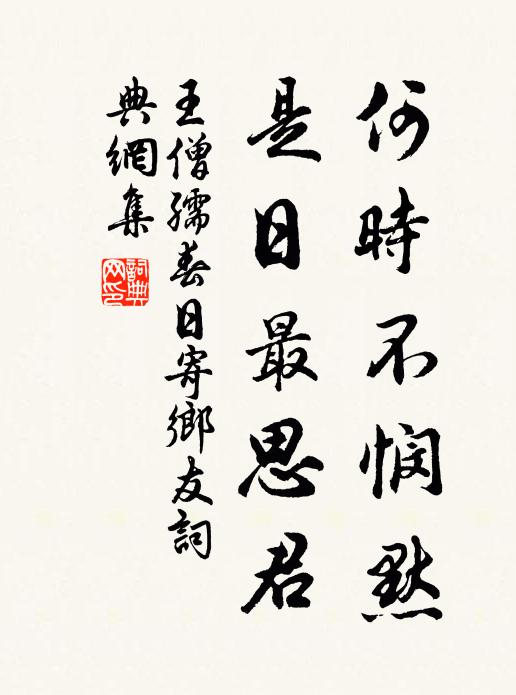 何時不悯默
是日最思君
王僧孺春日寄鄉友詞
典網集
詞典
网印